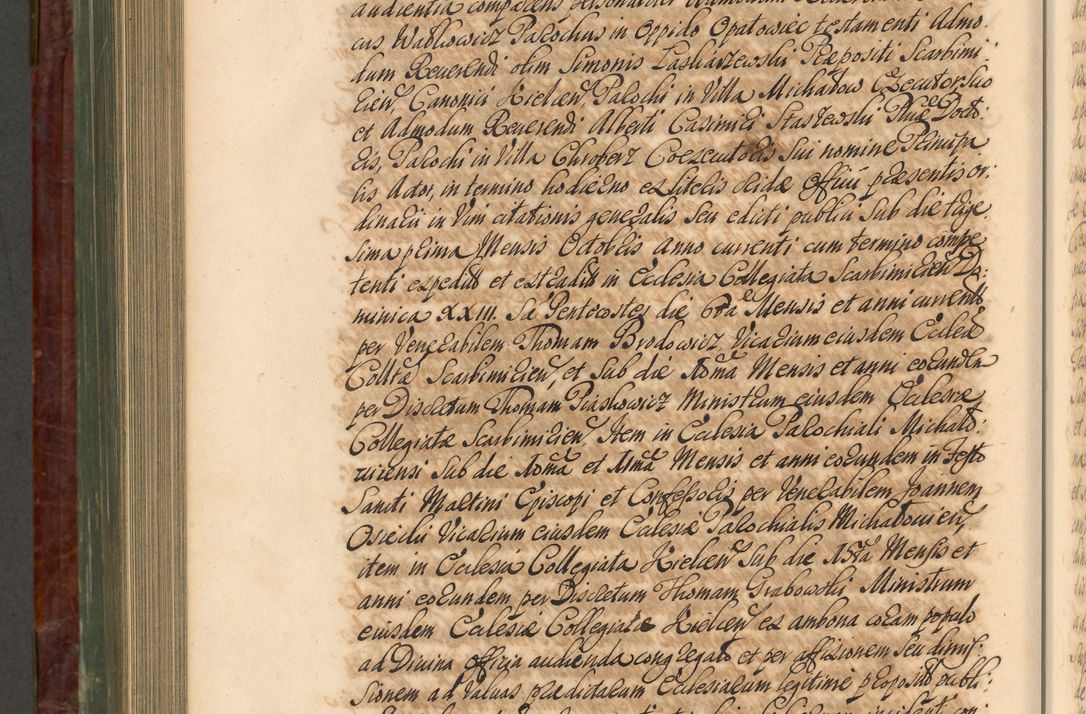 audientia comparens personaliter
cus Watkowicz Parochus in Oppido Opatowiec testamenti Admo
dum Reuerendi olim Simonis Laskaszewski Præpositi Scarbimi:
rien̄ Canonici Kielcen̄ Parochi in Villa Michałow Executor suo
et Admodum Reuerendi Alberti Casimiri Staszewski Phiæ Docto:
ris, Parochi in Villa Chroberz Coexecutoris sui nomine Principa
lis Actor, in termino hodierno ex literis eiusdē Officii præsentis or:
dinarii in Vim citationis generalis seu edicti publici sub die trige
sima prima Mensis Octobris anno currenti cum termino compe
tenti expedit et extradit in Ecclesia Collegiata Scarbimirien̄ Do:
minica XXIII. Sā Pentecostes die 6ta Mensis et anni current
per Venerabilem Thomam Brodowicz Vicarium eiusdem Eccleæ
Colltæ Scarbimirien̄, et sub die 10mā Mensis et anni eorundem
per Discretum Thomam Piaskowicz Ministrum eiusdem Ecclesiæ
Collegiatæ Scarbimirien̄ Item in Ecclesia Parochiali Michało:
viensi sub die 10mā et 11mā Mensis et anni eorundem in Festo
Sancti Martini Episcopi et Confessoris per Venerabilem Joannem
Osiecki Vicarium eiusdem Ecclesiæ Parochialis Michałouien̄,
item in Ecclesia Collegiata Kielcen̄ sub die 15tā Mensis et
anni eorundem per Discretum Thomam Grabowski Ministrum
eiusdem Ecclesiæ Collegiatæ Kielcen̄ ex ambona coram populo
ad Divina Officia audienda congregato et per affixionem seu dimis:
sionem ad Valuas prædictarum Ecclesiarum legitime proposit publi: